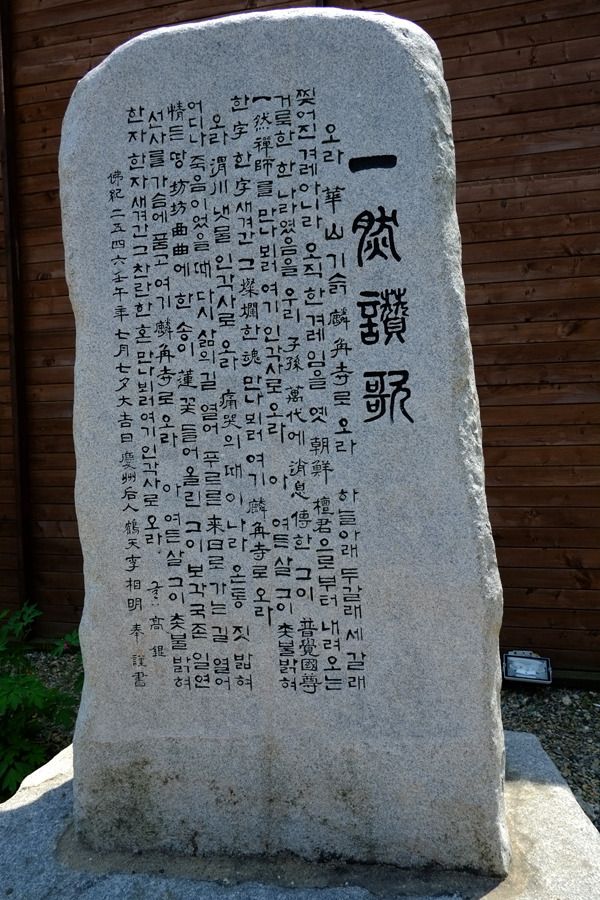 一然讚歌
오라 華山 기슭 麟角寺로 오라 하늘아래 두갈래 세갈래
찢어진 겨레 아니라 오직 한 겨레임을 옛 朝鮮 檀君으로부터 내려오는
거룩한 한 나라였음을 우리 子孫 萬代에 消息 傳한 그이 普覺國尊
一然禪師를 만나 뵈러 여기 인각사로 오라 아 여든 살 그이 촛불 밝혀
한字 한字 새겨간 그 燦爛한 魂 만나 뵈러 여기 麟角寺로 오라
오라 渭川 냇물 인각사로 오라 痛哭의 때이니라 온통 짓밟혀
어디나 죽음이었을 때 다시 삶의 길 열어 푸르른 來日로 가는 길 열어
情든 땅 坊坊曲曲에 한 송이 蓮꽃 들어올린 그이 보각국존 일연
선사를 가슴에 품고 여기 麟角寺로 오라 아 여든 살 그이 촛불 밝혀
한자 한자 새겨간 그 찬란한 혼 만나뵈러 여기 인각사로 오라 글 高銀
佛紀 二五四六 壬午年 七月七夕大吉日 慶州后人 鶴天 李相明 奉謹書